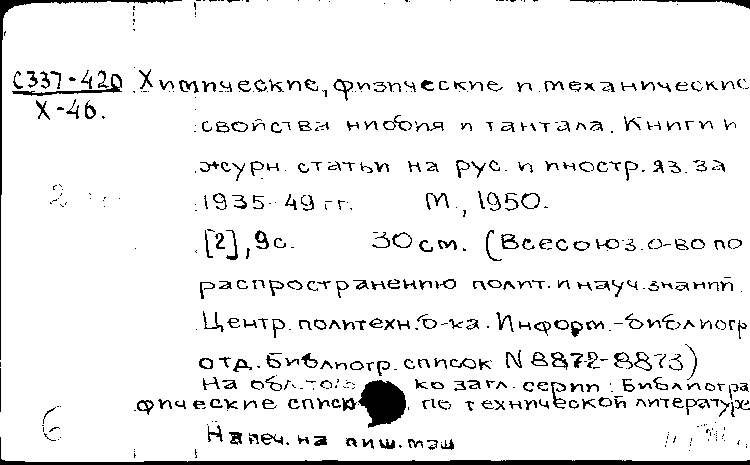 С337-420 Химические, физические и механические
Х-46.
свойства ниобия и тантала. Книги и
журн. статьи на рус. и иностр. яз. за
1935-49 гг. М., 1950.
[2], 9 с. 30 см. (Всесоюз. о-во по
распространению полит. и науч. знаний.
Центр. политехн. б-ка. Информ.-библиогр
отд. Библиогр. список N 8872-8873)
На обл. ко загл. серии: Библиогра
фические списк по технической литературе
6 Напеч. на пиш. маш